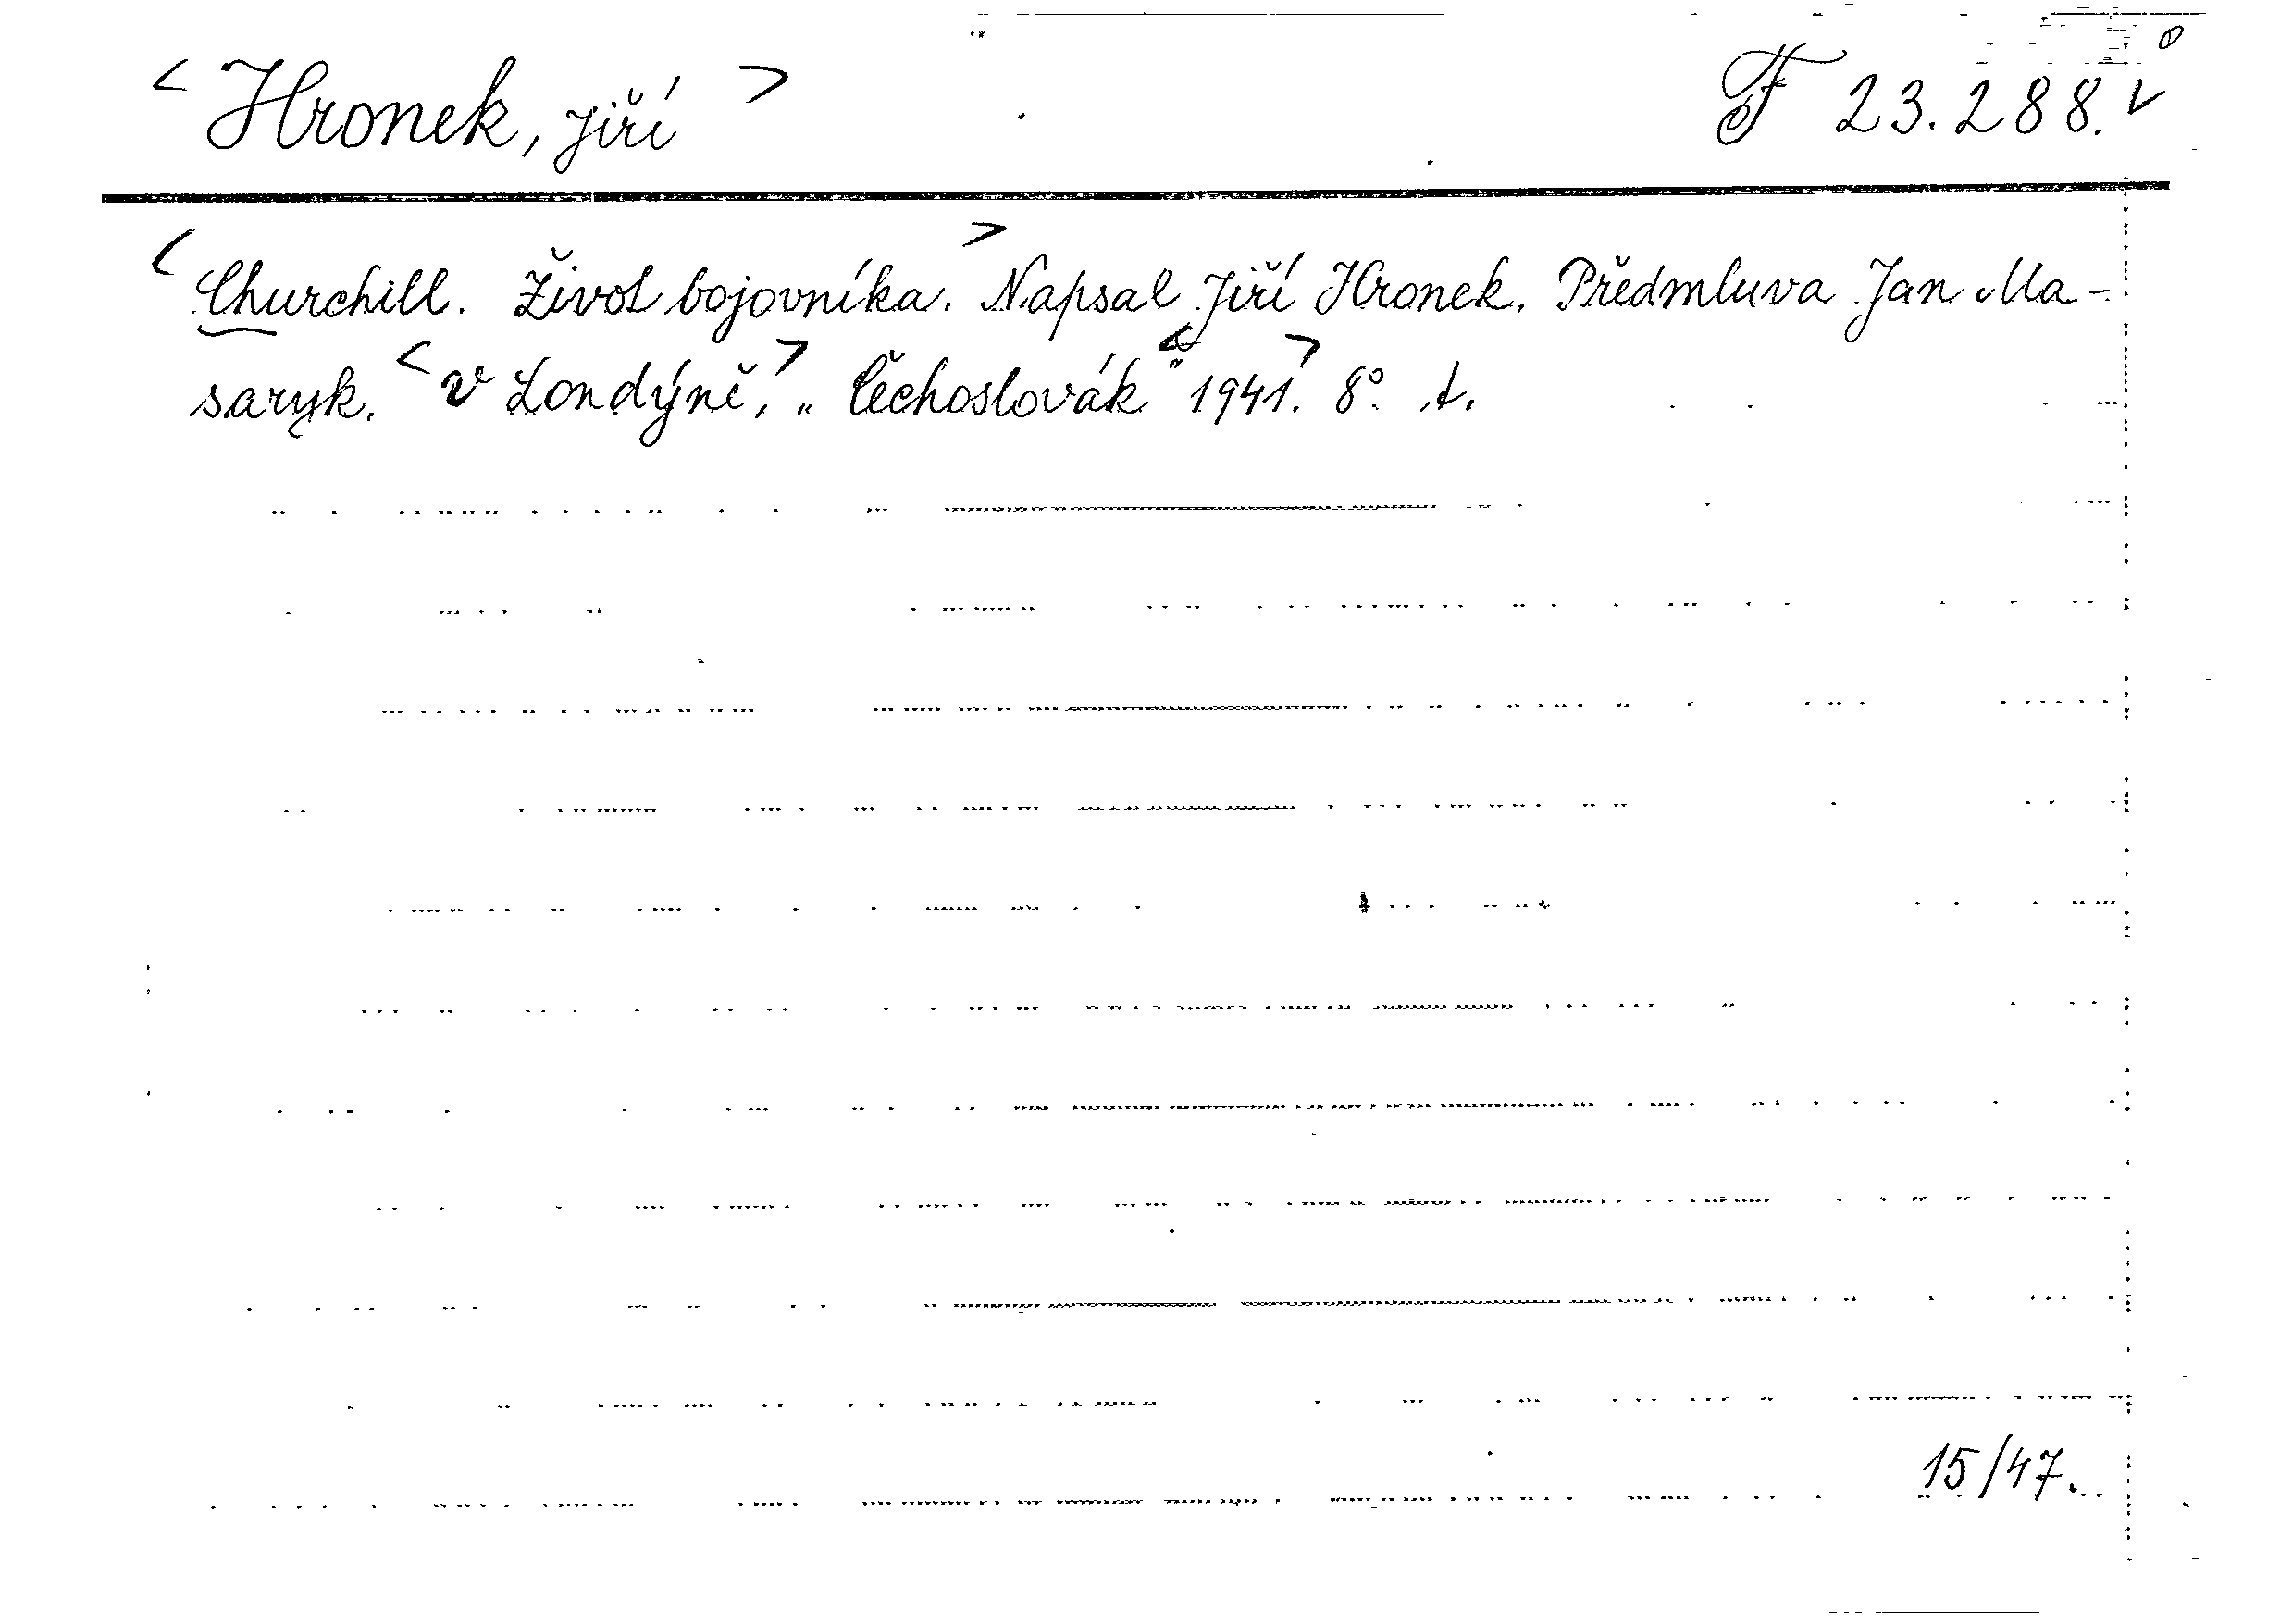 < Hronek, Jiří > F 23.288. v
< Churchill. Život bojovníka. > Napsal Jiří Hronek. Předmluva Jan Ma-
saryk. < V Londýně, > „Čechoslovák" < 1941. > 8°. t.
15/47.